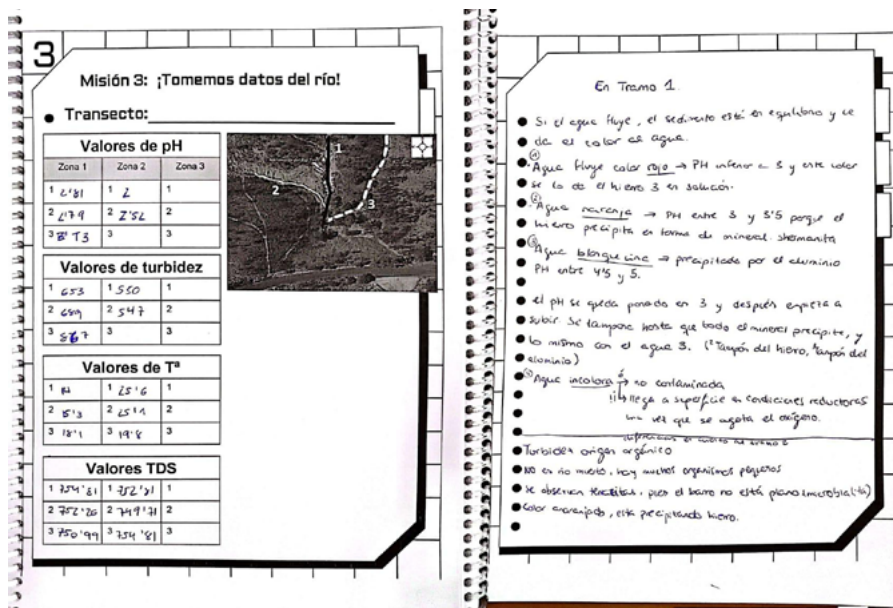 3
Misión 3: ¡Tomemos datos del río!
Transecto:
Valores de pH
Zona 1 Zona 2 Zona 3
1 2'81 1 2 1
2 2'79 2 2'52 2
3 3 3
1
2
3
Valores de turbidez
1 653 1 550 1
2 689 2 547 2
3 867 3 3
Valores de Tª
1 1 25'6 1
2 15'3 2 25'1 2
3 18'1 3 19'8 3
Valores TDS
1 754'81 1 752'81 1
2 752'26 2 749'71 2
3 750'99 3 754'81 3
En Tramo 1.
Si el agua fluye, el sedimento está en equilibrio y le
da el color al agua.
① Agua fluye color rojo → PH inferior a 3 y este color
se lo da el hierro 3 en solución.
② Agua naranja → PH entre 3 y 3'5 porque el
hierro precipita en forma de mineral.
③ Agua → precipitado por el aluminio
PH entre 4'5 y 5.
el pH se queda parado en 3 y después empieza a
subir. Se tampona hasta que todo el mineral precipite, y
lo mismo con el agua 3. (Tampón del hierro, tampón del
aluminio)
④ Agua incolora → no contaminada
llega a superficie en condiciones reductoras
una vez que se agota el oxígeno.
Turbidez origen orgánico
No es río muerto, hay muchos organismos pequeños
Se observan, pues el barro no está plano (microbialita)
Color anaranjado, está precipitando hierro.